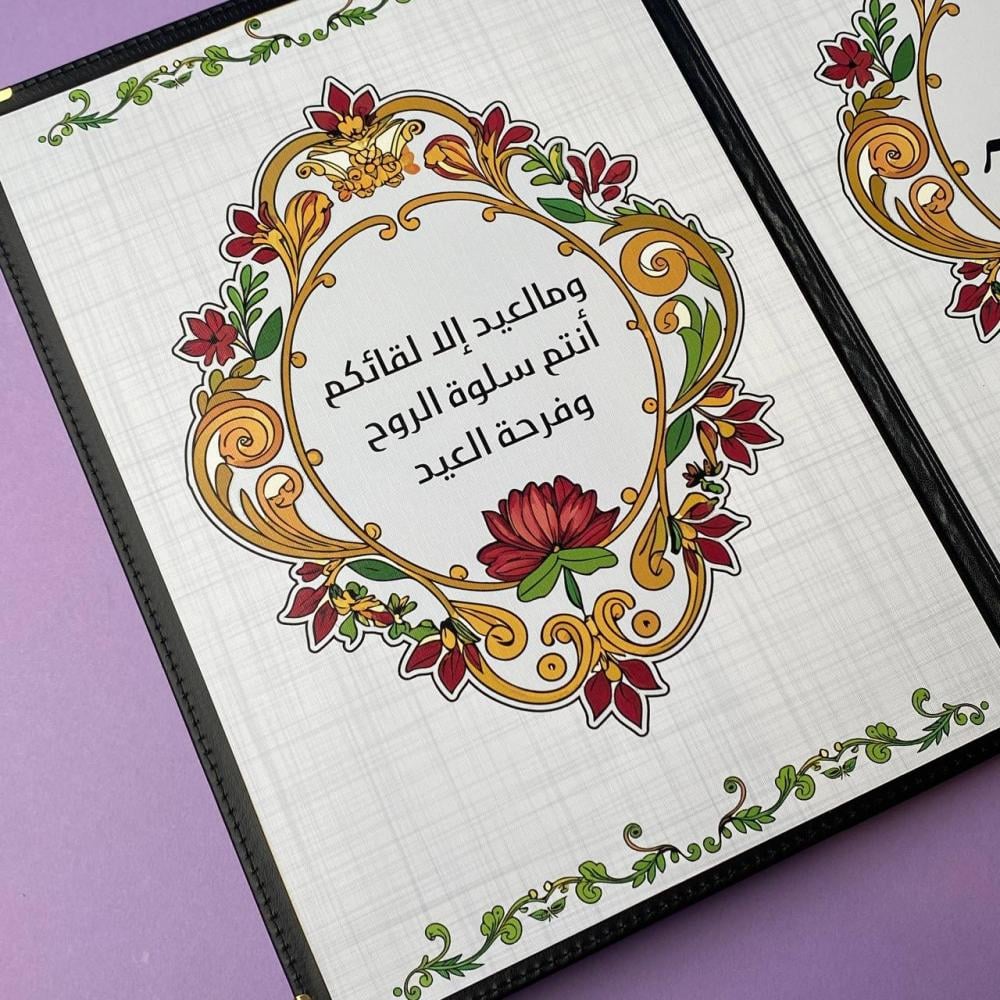 ومالعيد إلا لقائكم
أنتم سلوة الروح
وفرحة العيد